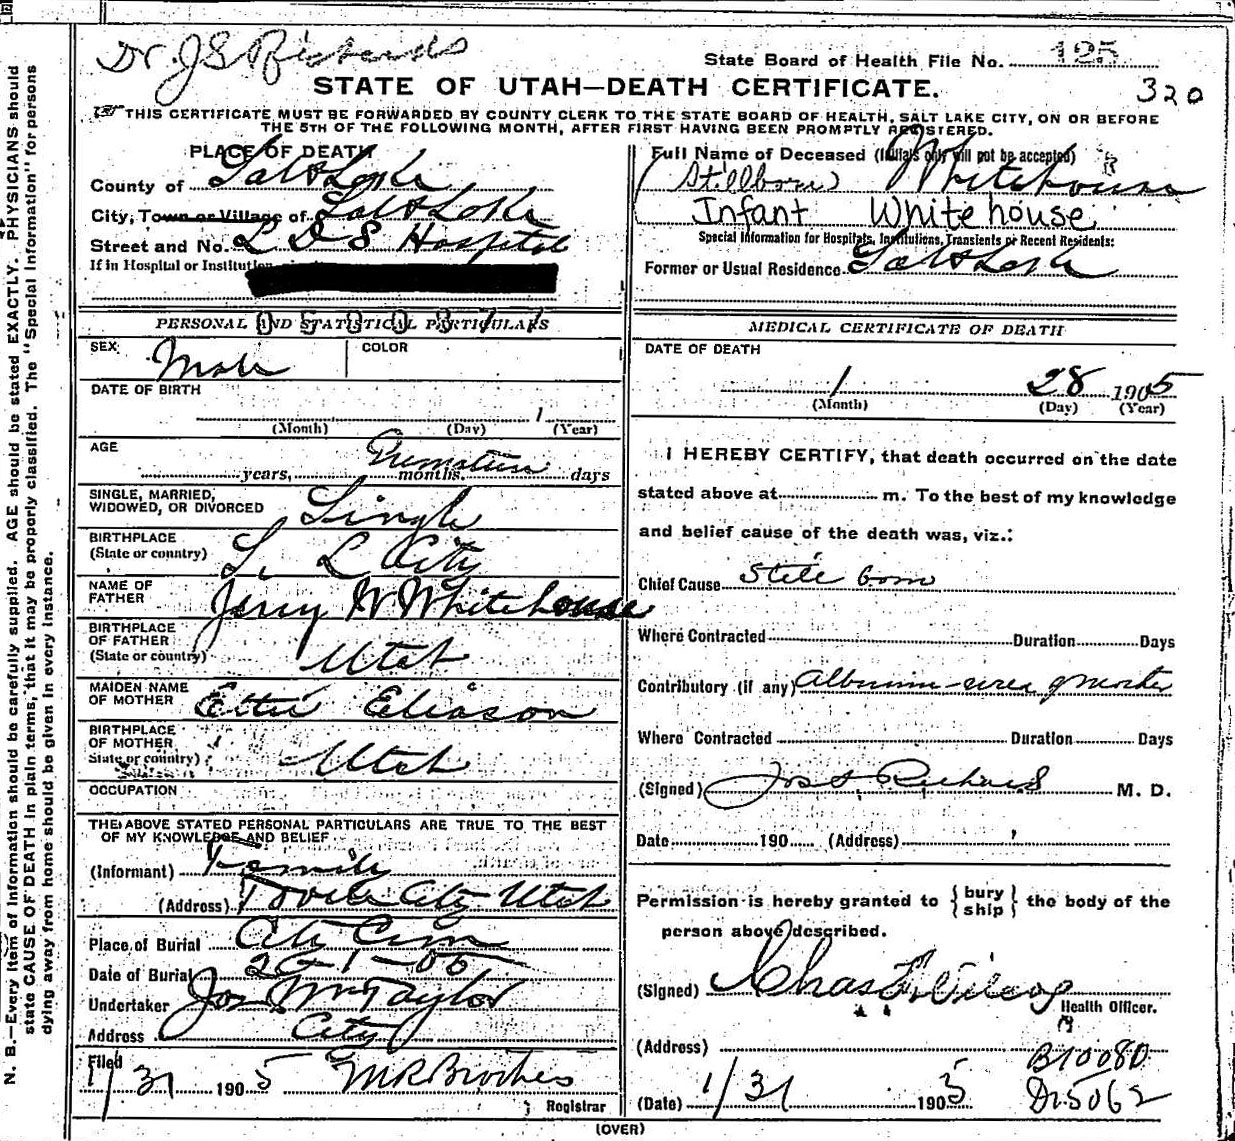 Dr. J S Richards
State Board of Health File No. 125
STATE OF UTAH—DEATH CERTIFICATE.
320
THIS CERTIFICATE MUST BE FORWARDED BY COUNTY CLERK TO THE STATE BOARD OF HEALTH, SALT LAKE CITY, ON OR BEFORE
THE 5TH OF THE FOLLOWING MONTH, AFTER FIRST HAVING BEEN PROMPTLY REGISTERED.
PLACE OF DEATH
County of Salt Lake
City, Town or Village of Salt Lake
Street and No. L D S Hospital
If in Hospital or Institution
Full Name of Deceased (Initials only will not be accepted)
(Stillborn) Whitehouse
Infant Whitehouse
Special Information for Hospitals, Institutions, Transients or Recent Residents:
Former or Usual Residence Salt Lake
PERSONAL AND STATISTICAL PARTICULARS
SEX Male COLOR
DATE OF BIRTH
1
(Month) (Day) (Year)
AGE
years, Premature months, days
SINGLE, MARRIED,
WIDOWED, OR DIVORCED Single
BIRTHPLACE
(State or country) S. L. City
NAME OF
FATHER Jerry W Whitehouse
BIRTHPLACE
OF FATHER
(State or country) Utah
MAIDEN NAME
OF MOTHER Eliason
BIRTHPLACE
OF MOTHER
State or country) Utah
OCCUPATION
THE ABOVE STATED PERSONAL PARTICULARS ARE TRUE TO THE BEST
OF MY KNOWLEDGE AND BELIEF
(Informant) Family
(Address) City Utah
Place of Burial City Cem
Date of Burial
Undertaker Jos Wm Taylor
Address City
Filed
1/31 1905 M R Brothes
Registrar
MEDICAL CERTIFICATE OF DEATH
DATE OF DEATH
1 28 1905
(Month) (Day) (Year)
I HEREBY CERTIFY, that death occurred on the date
stated above at m. To the best of my knowledge
and belief cause of the death was, viz.:
Chief Cause Still born
Where Contracted Duration Days
Contributory (if any) Albuminurea of Mother
Where Contracted Duration Days
(Signed) Jos S. Richards M. D.
Date 190 (Address)
Permission is hereby granted to { bury
ship } the body of the
person above described.
(Signed) Chas F. Wilcox
Health Officer.
(Address)
B10080
(Date) 1/31 1905
D.5062
(OVER)
N. B.—Every item of information should be carefully supplied. AGE should be stated EXACTLY. PHYSICIANS should
state CAUSE OF DEATH in plain terms, that it may be properly classified. The "Special Information" for persons
dying away from home should be given in every instance.